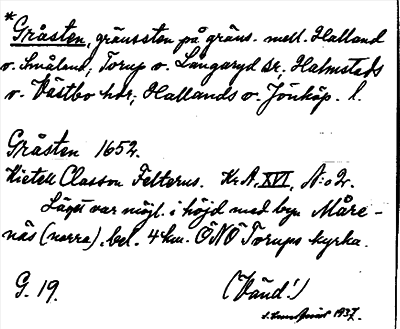 *Gråsten, gränssten på gräns. mell. Halland
o. Småland; Torup o. Långaryd sr; Halmstads
o. Västbo hdr; Hallands o. Jönköp. l.
Gråsten 1652.
Kietell Classon Felterus. Kr.A. XVI, N:o 2.
Läget var möjl. i höjd med byn Måre-
näs (norra), bel. 4 km. ÖNÖ Torups kyrka.
G. 19.
(Vänd!)
1937.